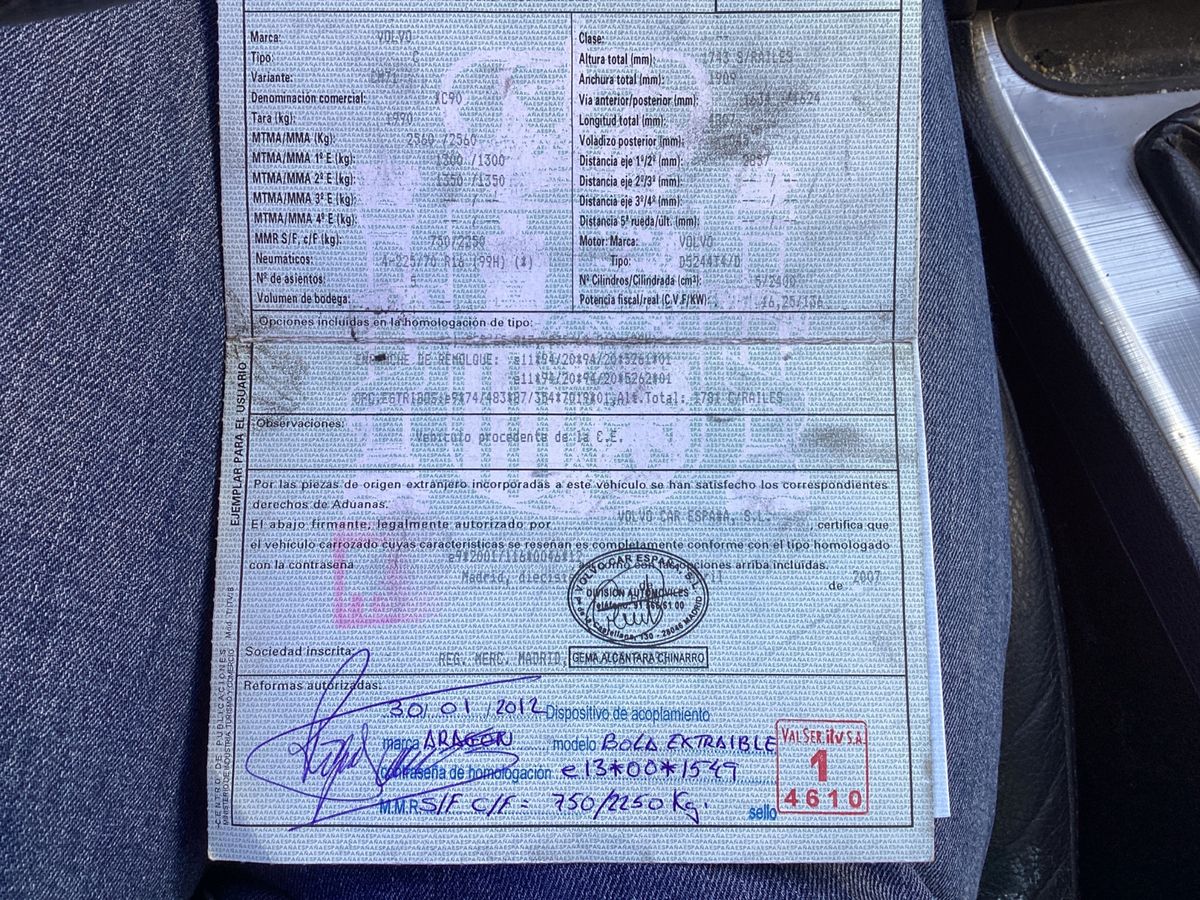 Marca: VOLVO
Tipo: C
Variante: CM71
Denominación comercial: XC90
Tara (kg): 1990
MTMA/MMA (Kg): 2560 /2560
MTMA/MMA 1º E (kg): 1300 /1300
MTMA/MMA 2º E (kg): 1350 /1350
MTMA/MMA 3º E (kg): --- / ---
MTMA/MMA 4º E (kg):
MMR S/F, c/F (kg): 750/2250
Neumáticos: 4-225/70 R16 (99H) (*)
Nº de asientos: 5
Volumen de bodega:
Clase:
Altura total (mm): 1743 S/RAILES
Anchura total (mm): 1909
Vía anterior/posterior (mm): 1634 /1624
Longitud total (mm): 4807
Voladizo posterior (mm):
Distancia eje 1º/2º (mm): 2857
Distancia eje 2º/3º (mm): -- / --
Distancia eje 3º/4º (mm): -- / --
Distancia 5ª rueda/últ. (mm): -- / --
Motor: Marca: VOLVO
Tipo: D5244T4/D
Nº Cilindros/Cilindrada (cm³): 5/2400
Potencia fiscal/real (C.V.F/KW): 16,25/136
Opciones incluidas en la homologación de tipo:
ENGANCHE DE REMOLQUE: e11*94/20*94/20*5261*01
e11*94/20*94/20*5262*01
OPC.ESTRIBOS:e9*74/483*87/354*7019*01,Alt.Total: 1781 C/RAILES
Observaciones:
Vehículo procedente de la C.E.
Por las piezas de origen extranjero incorporadas a este vehículo se han satisfecho los correspondientes
derechos de Aduanas.
El abajo firmante, legalmente autorizado por VOLVO CAR ESPAÑA, S.L. , certifica que
el vehículo carrozado cuyas características se reseñan es completamente conforme con el tipo homologado
con la contraseña e9*2001/116*0046*12 opciones arriba incluidas.
Madrid, de 2007
VOLVO CAR ESPAÑA, S.L.
DIVISIÓN AUTOMÓVILES
Teléfono: 91 566 61 00
Pº de la Castellana, 130 - 28046 MADRID
Sociedad inscrita: REG. MERC. MADRID, GEMA ALCANTARA CHINARRO
Reformas autorizadas:
30/ 01 /2012 Dispositivo de acoplamiento
marca ARAGON modelo BOLA EXTRAIBLE
contraseña de homologación e13*00*1549
M.M.R. S/F C/F = 750/2250 Kg. sello
VALSER itv S.A.
1
4610
EJEMPLAR PARA EL USUARIO
CENTRO DE PUBLICACIONES
MINISTERIO DE INDUSTRIA, TURISMO Y COMERCIO